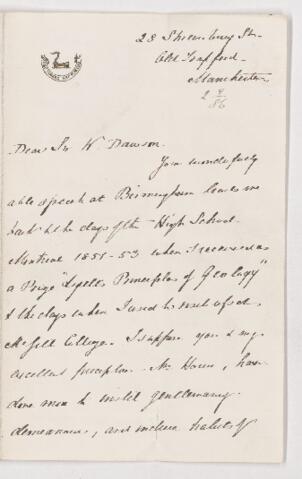 28 Shrewsbury St.
Old Trafford.
Manchester
2 9/86
Dear Sir W. Dawson.
Your wonderfully
able speech at Birmingham leaves me
back to the days of the High School
Montreal 1851-53 when I received as
a Prize "Lyell's Principles of Geology"
& the days when I used to visit
McGill College. I suppose you & my
excellent preceptor Mr Howe, have
done more to instil gentlemanly
demeanour, and induce habits of